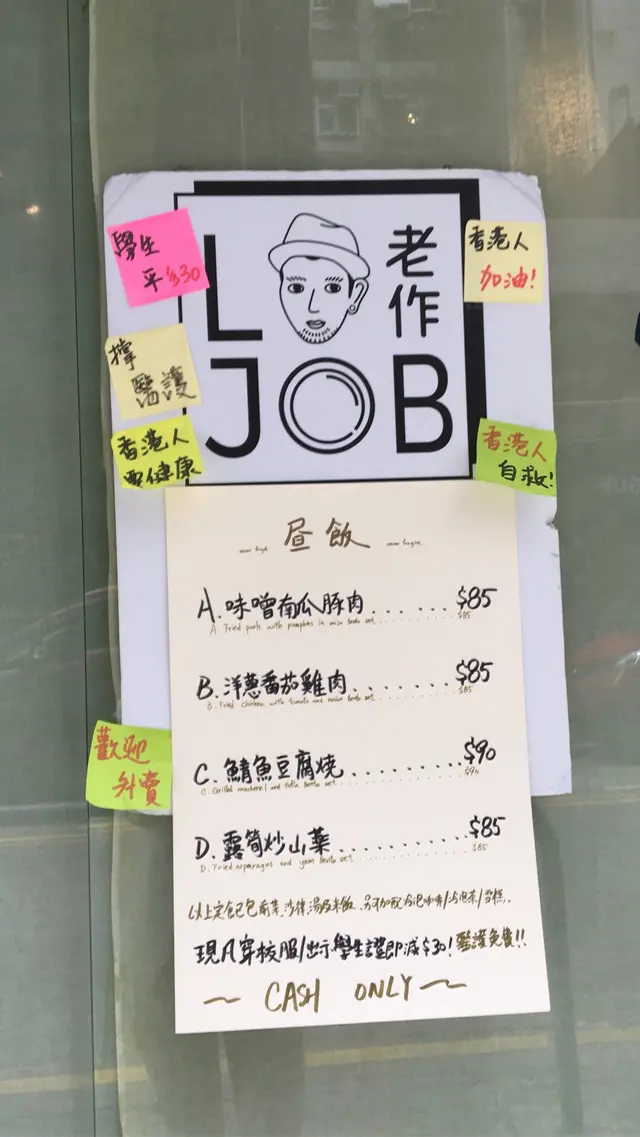 學生
平$30
撐
醫護
香港人
要健康
L 老作
JOB
香港人
加油!
香港人
自救!
歡迎
外賣
昼飯
A. 味噌南瓜豚肉......$85
A. Fried pork with pumpkin in miso bento set $85
B. 洋蔥番茄雞肉......$85
B. Fried chicken with tomato and onion bento set $85
C. 鯖魚豆腐燒.........$90
C. Grilled mackerel and tofu bento set $90
D. 露筍炒山藥.........$85
D. Fried asparagus and yam bento set $85
以上定食已包前菜,沙律,湯及米飯
現凡穿校服/出示學生證即減$30!醫護免費!!
~ CASH ONLY ~